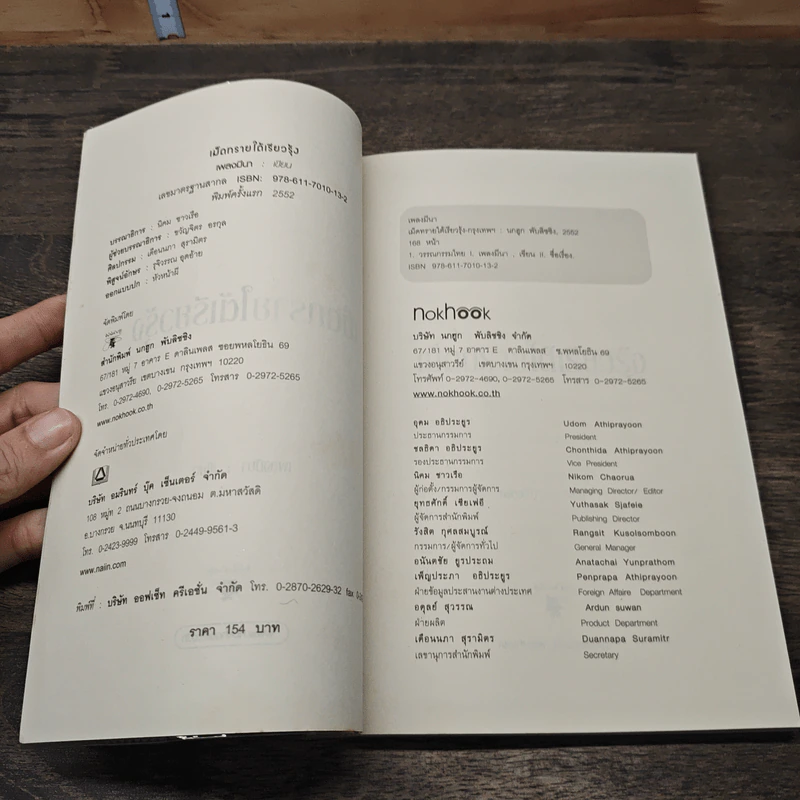 เม็ดทรายใต้เรียวรุ้ง
เพลงมีนา : เขียน
เลขมาตรฐานสากล ISBN: 978-611-7010-13-2
พิมพ์ครั้งแรก 2552
บรรณาธิการ : นิคม ชาวเรือ
ผู้ช่วยบรรณาธิการ : ขวัญจิตร อรกุล
ศิลปกรรม : เดือนนภา สุรามิตร
พิสูจน์อักษร : รุจิวรรณ อุดอ้าย
ออกแบบปก : หัวหน้ามี
จัดพิมพ์โดย
สำนักพิมพ์ นกฮูก พับลิชชิ่ง
67/181 หมู่ 7 อาคาร E ดาลินเพลส ซอยพหลโยธิน 69
แขวงอนุสาวรีย์ เขตบางเขน กรุงเทพฯ 10220
โทร. 0-2972-4690, 0-2972-5265 โทรสาร 0-2972-5265
www.nokhook.co.th
จัดจำหน่ายทั่วประเทศโดย
บริษัท อมรินทร์ บุ๊ค เซ็นเตอร์ จำกัด
108 หมู่ที่ 2 ถนนบางกรวย-จงถนอม ต.มหาสวัสดิ์
อ.บางกรวย จ.นนทบุรี 11130
โทร. 0-2423-9999 โทรสาร 0-2449-9561-3
www.naiin.com
พิมพ์ที่ : บริษัท ออฟเซ็ท ครีเอชั่น จำกัด โทร. 0-2870-2629-32 fax
ราคา 154 บาท
เพลงมีนา
เม็ดทรายใต้เรียวรุ้ง-กรุงเทพฯ : นกฮูก พับลิชชิ่ง, 2552
168 หน้า
1. วรรณกรรมไทย I. เพลงมีนา , เขียน II. ชื่อเรื่อง.
ISBN 978-611-7010-13-2
nokhook
บริษัท นกฮูก พับลิชชิง จำกัด
67/181 หมู่ 7 อาคาร E ดาลินเพลส ซ.พหลโยธิน 69
แขวงอนุสาวรีย์ เขตบางเขน กรุงเทพฯ 10220
โทรศัพท์ 0-2972-4690, 0-2972-5265 โทรสาร 0-2972-5265
www.nokhook.co.th
อุดม อธิประยูร Udom Athiprayoon
ประธานกรรมการ President
ชลธิดา อธิประยูร Chonthida Athiprayoon
รองประธานกรรมการ Vice President
นิคม ชาวเรือ Nikom Chaorua
ผู้ก่อตั้ง/กรรมการผู้จัดการ Managing Director/ Editor
ยุทธศักดิ์ เซียเฟอี Yuthasak Sjafeie
ผู้จัดการสำนักพิมพ์ Publishing Director
รังสิต กุศลสมบูรณ์ Rangsit Kusolsomboon
กรรมการ/ผู้จัดการทั่วไป General Manager
อนันตชัย ยูรประถม Anatachai Yunprathom
เพ็ญประภา อธิประยูร Penprapa Athiprayoon
ฝ่ายข้อมูลประสานงานต่างประเทศ Foreign Affaire Department
อดุลย์ สุวรรณ Ardun suwan
ฝ่ายผลิต Product Department
เดือนนภา สุรามิตร Duannapa Suramitr
เลขานุการสำนักพิมพ์ Secretary